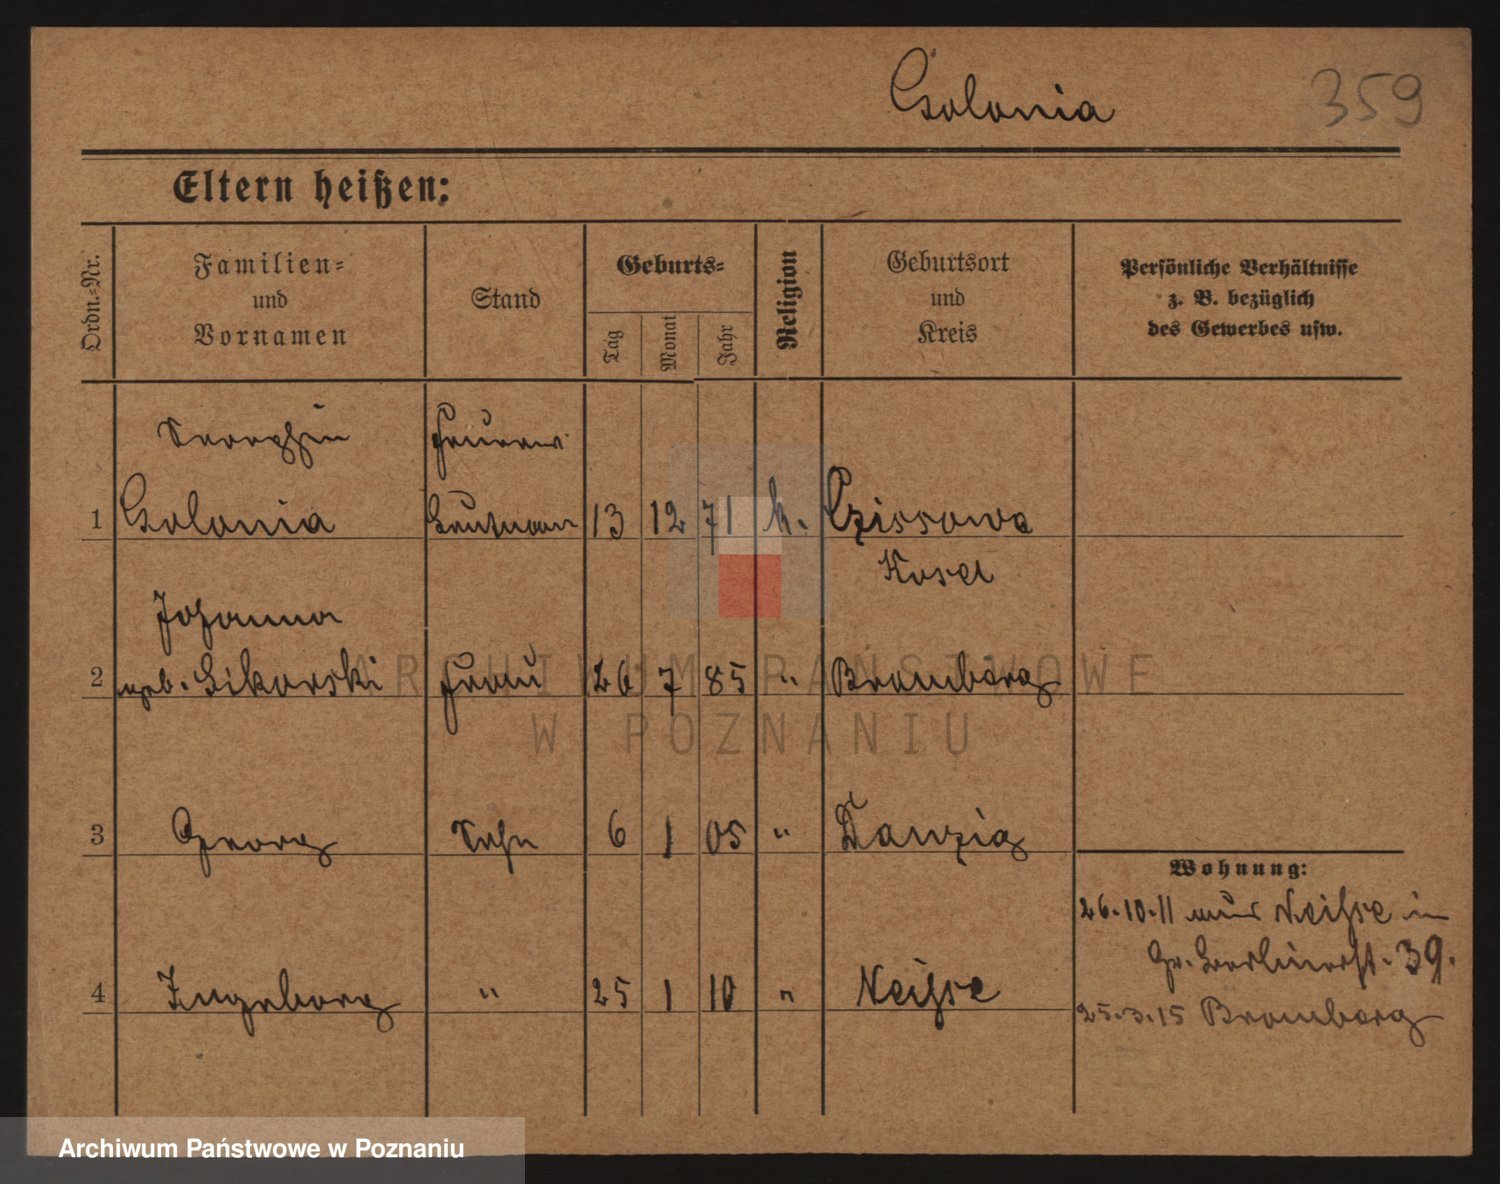 Golonia 359
Eltern heißen:
Ordn.-Nr.
Familien- und Vornamen
Stand
Geburts-
Tag
Monat
Jahr
Religion
Geburtsort und Kreis
Persönliche Verhältnisse z. B. bezüglich des Gewerbes usw.
Seraphin
1 Golonia 13 12 71 k. Czissowa
Kosel
Johanna
2 geb. Sikorski Frau 26 7 85 " Bromberg
ARCHIWUM PAŃSTWOWE
W POZNANIU
3 Georg Sohn 6 1 05 " Danzig
Wohnung:
26.10.11 aus Neisse in
Gr. Berlinerst. 39.
4 Ingeborg " 25 1 10 " Neisse
25.3.15 Bromberg
Archiwum Państwowe w Poznaniu